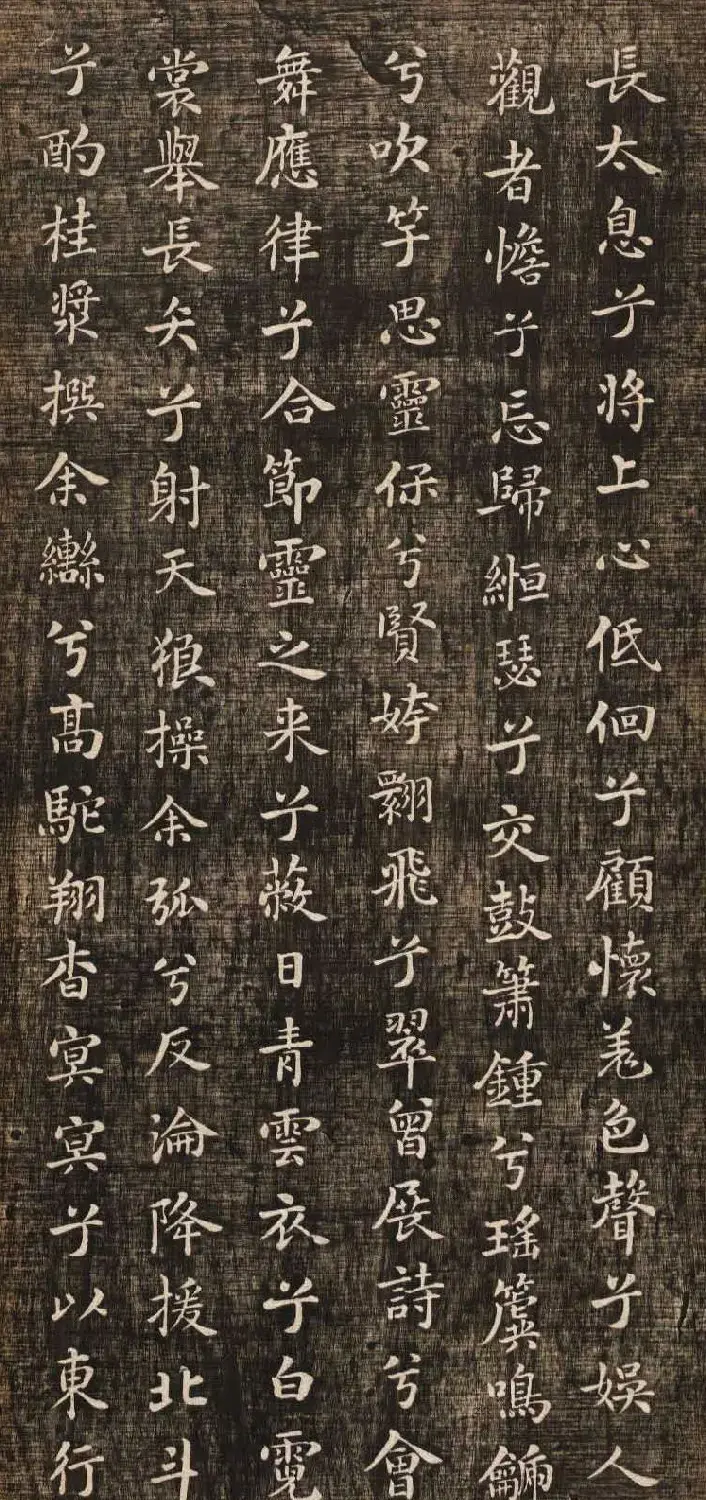 長太息兮將上心低佪兮顧懷羌色聲兮娛人
觀者憺兮忘歸縆瑟兮交鼓簫鍾兮瑤簴鳴䶵
兮吹竽思靈保兮賢姱翾飛兮翠曾展詩兮會
舞應律兮合節靈之来兮蔽日青雲衣兮白霓
裳舉長矢兮射天狼操余弧兮反淪降援北斗
兮酌桂漿撰余轡兮高駝翔杳冥冥兮以東行